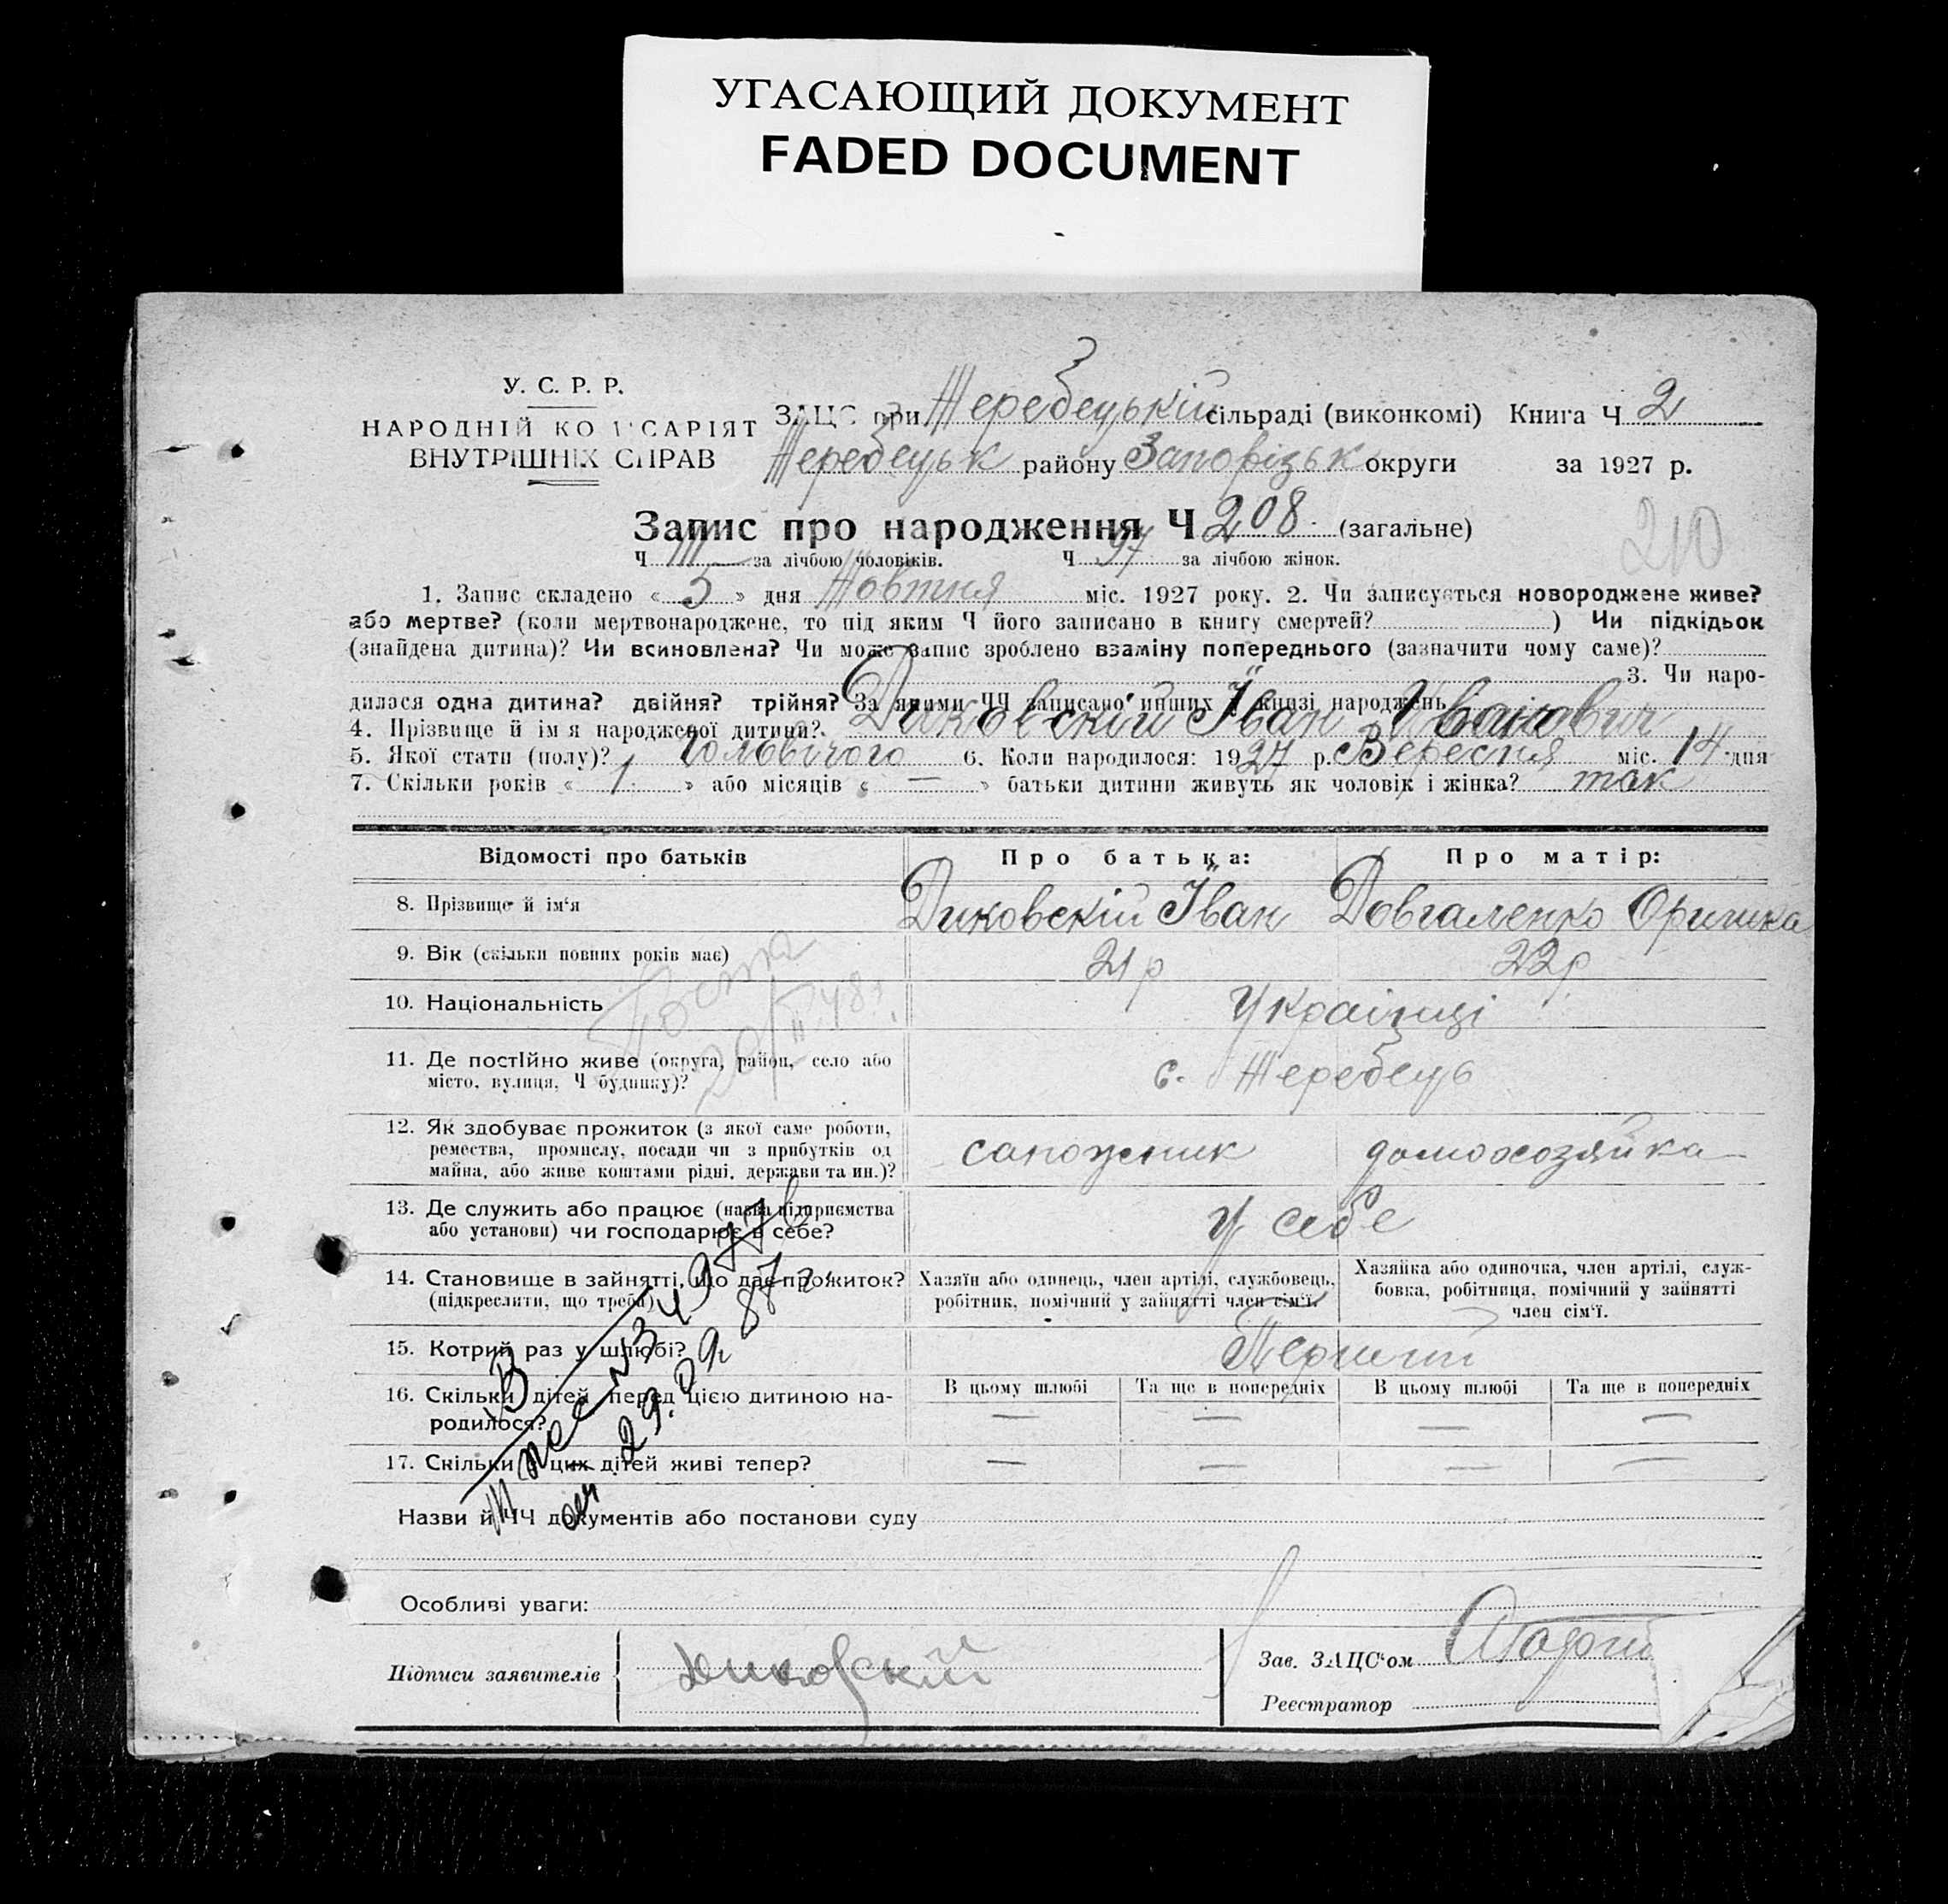 УГАСАЮЩИЙ ДОКУМЕНТ
FADED DOCUMENT
У. С. Р. Р.
НАРОДНІЙ КОМІСАРІЯТ
ВНУТРІШНІХ СПРАВ
ЗАЦС при Жеребецькій сільраді (виконкомі) Книга Ч 2
Жеребецьк району Запорізьк округи за 1927 р.
Запис про народження Ч 208 (загальне)
210
Ч 111 за лічбою чоловіків. Ч 97 за лічбою жінок.
1. Запис складено « 5 » дня Жовтня міс. 1927 року. 2. Чи записується новороджене живе?
або мертве? (коли мертвонароджене, то під яким Ч його записано в книгу смертей? ) Чи підкідьок
(знайдена дитина)? Чи всиновлена? Чи може запис зроблено взаміну попереднього (зазначити чому саме)?
3. Чи наро-
дилася одна дитина? двійня? трійня? За якими ЧЧ записано инших у книзі народжень
4. Прізвище й ім я народженої дитини? Диковскій Іван Іванович
5. Якої стати (полу)? чоловічого 6. Коли народилося: 1927 р. Вересня міс. 14 дня
7. Скільки років « 1 » або місяців « — » батьки дитини живуть як чоловік і жінка? так
Відомості про батьків Про батька: Про матір:
8. Прізвище й ім'я Диковскій Іван Довгаленко Оришка
9. Вік (скільки повних років має) 21 р 22 р
10. Національність Українці
11. Де постійно живе (округа, район, село або
місто, вулиця, Ч будинку)? с. Жеребець
12. Як здобуває прожиток (з якої саме роботи,
ремества, промислу, посади чи з прибутків од
майна, або живе коштами рідні, держави та ин.)? сапожник домохозяйка
13. Де служить або працює (назва підприємства
або установи) чи господарює в себе? У себе
14. Становище в зайнятті, що дає прожиток?
(підкреслити, що треба)
Хазяїн або одинець, член артілі, службовець,
робітник, помічний у зайнятті член сім'ї.
Хазяйка або одиночка, член артілі, служ-
бовка, робітниця, помічний у зайнятті
член сім'ї.
15. Котрий раз у шлюбі? Перший
16. Скільки дітей перед цією дитиною на-
родилося?
В цьому шлюбі Та ще в попередніх В цьому шлюбі Та ще в попередніх
— — — —
17. Скільки з цих дітей живі тепер? — — — —
29.09.87 г.
Назви й ЧЧ документів або постанови суду
Особливі уваги:
Підписи заявителів Диковскій
Зав. ЗАЦС'ом
Реєстратор